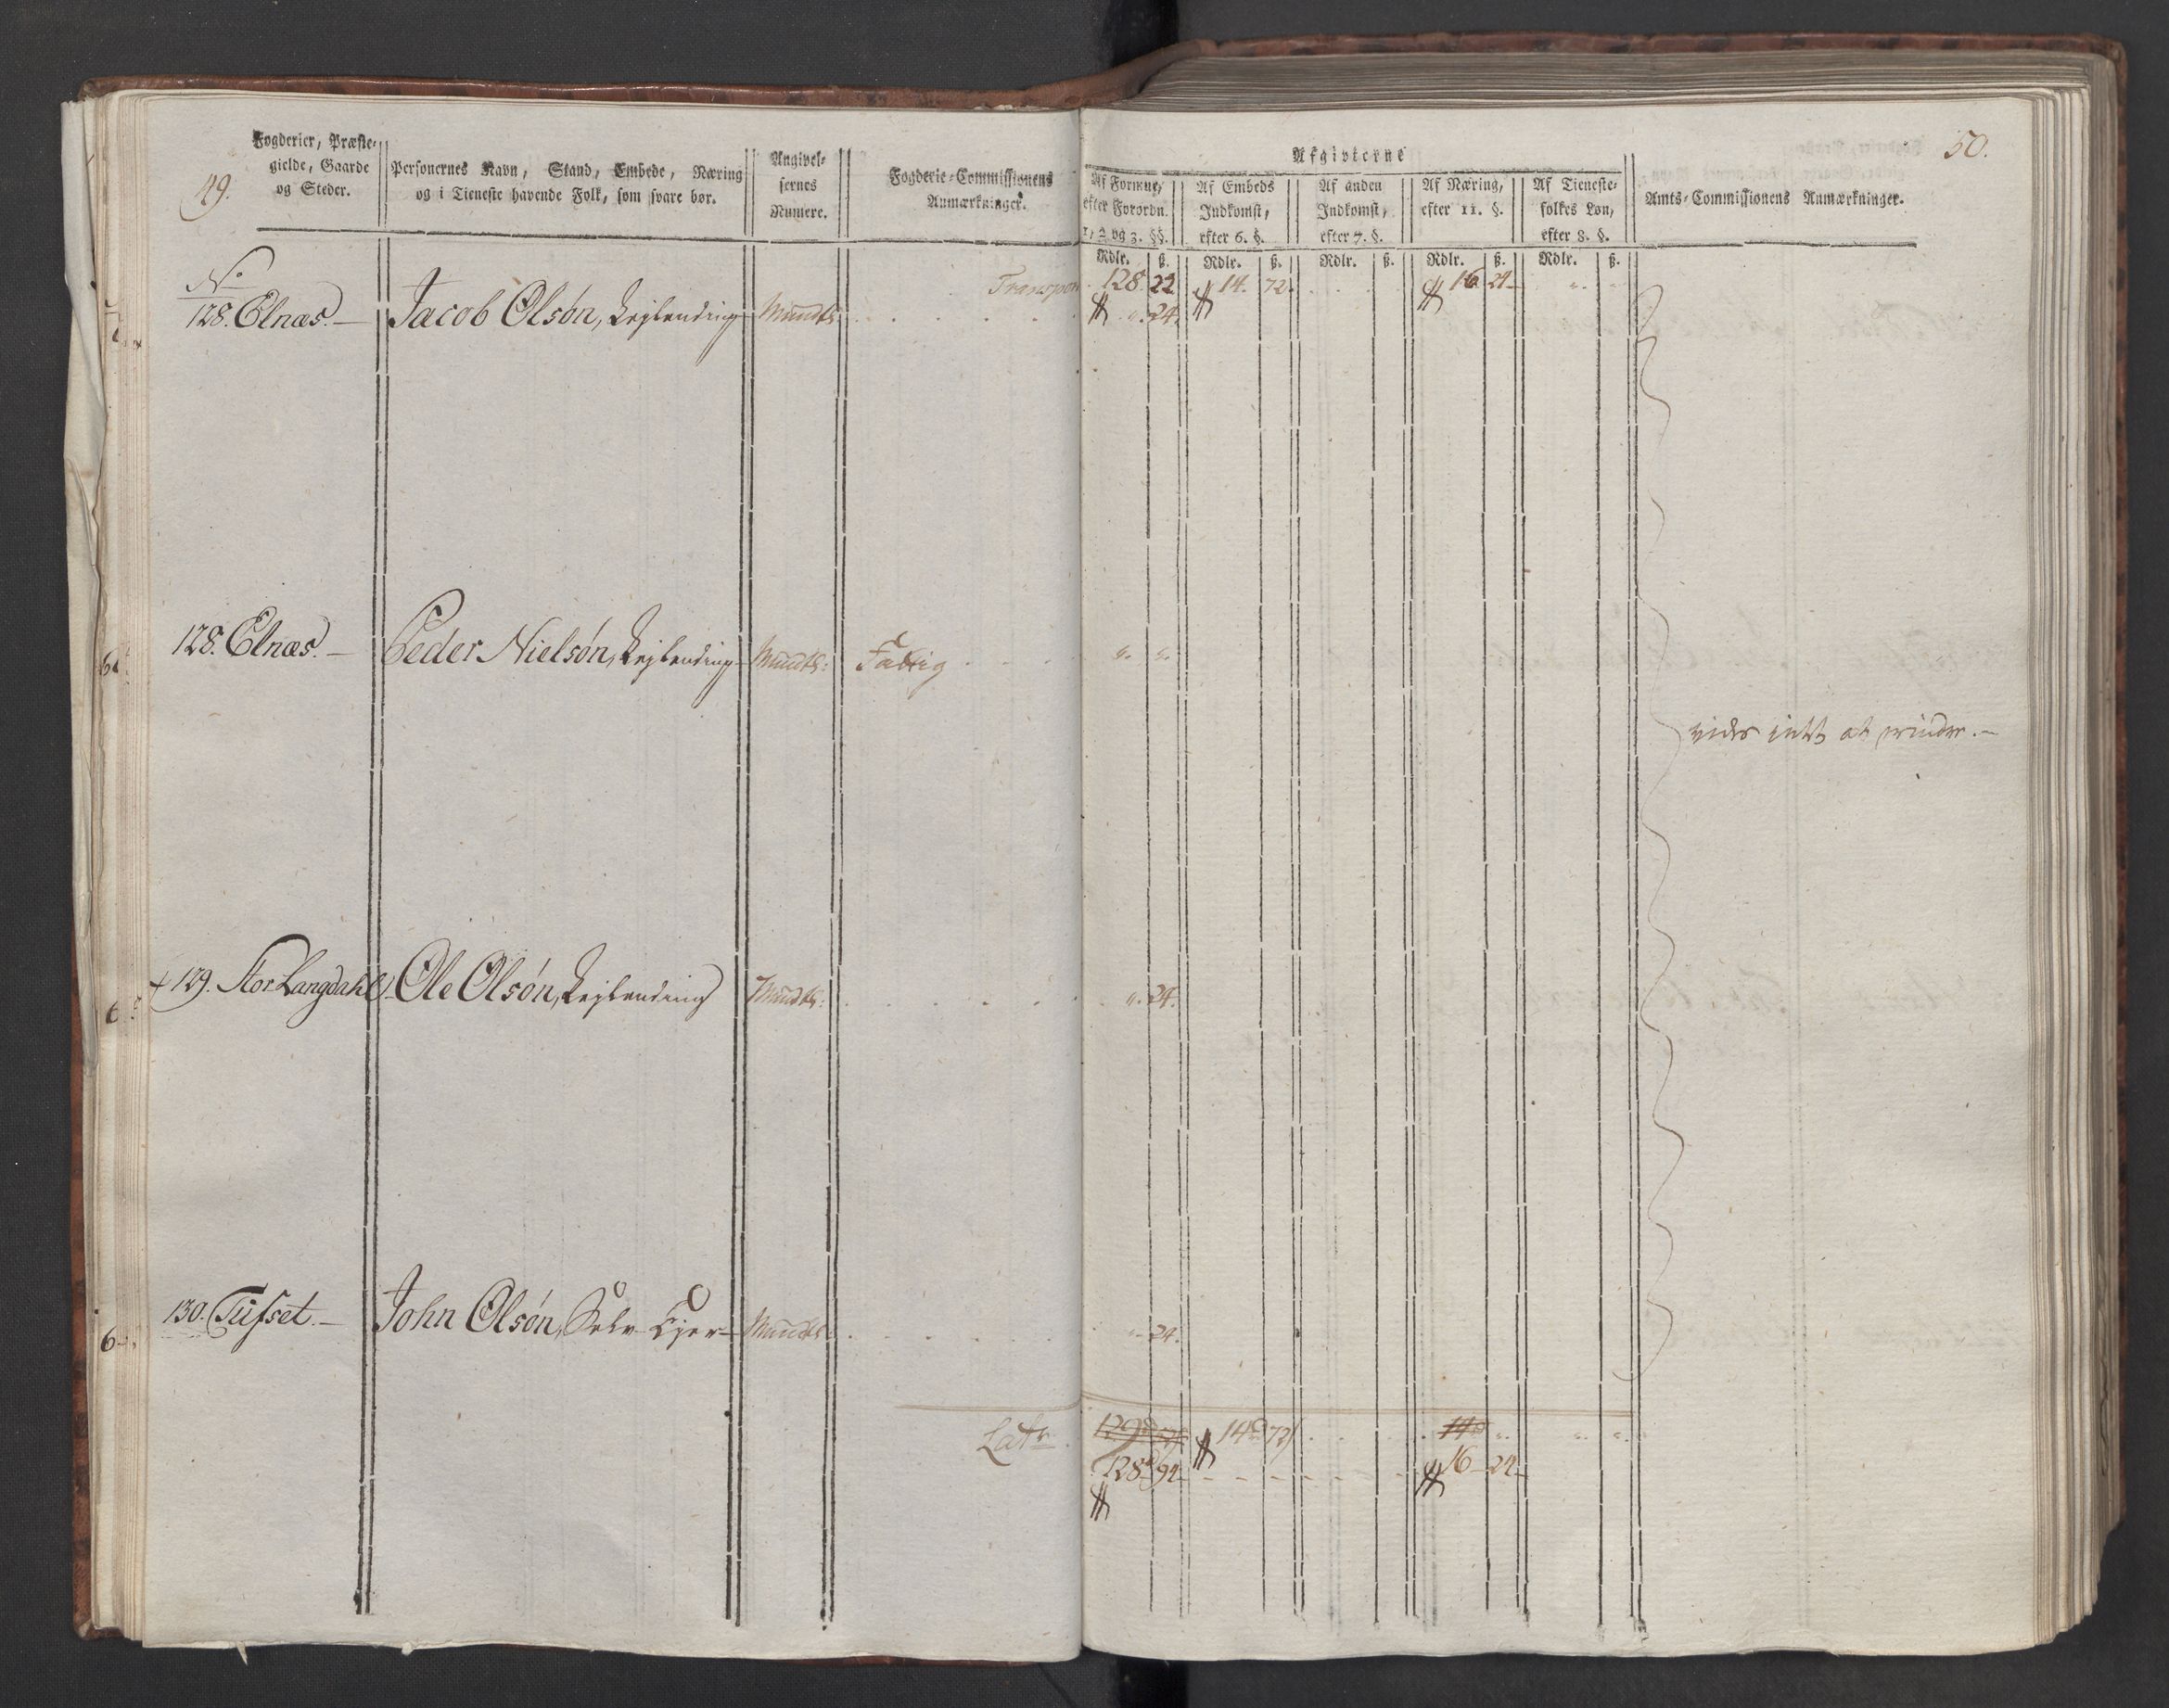 49.
Fogderier, Præste-
gielde, Gaarde
og Steder.
Personernes Navn, Stand, Embede, Næring
og i Tieneste havende Folk, som svare bør.
Angivel-
sernes
Numere.
Fogderie-Commissionens
Anmærkninger.
Transport
No
128. Elnæs. — Jacob Olsön, Lejlending Mundtl:
128. Elnæs. — Peder Nielsøn, Lejlending Mundtl: Fattig
+ 129. Stor Langdahl, Ole Olsøn, Lejlending Mundtl:
130. Tüfset. — John Olsøn, Selv Ejer Mundtl:
Latr
50.
Afgivterne
Af Formue,
efter Forordn.
1, 2 og 3. §§.
Af Embeds
Indkomst,
efter 6. §.
Af anden
Indkomst,
efter 7. §.
Af Næring,
efter 11. §.
Af Tieneste-
folkes Løn,
efter 8. §.
Amts-Commissionens Anmærkninger.
Rdlr. ß. Rdlr. ß. Rdlr. ß. Rdlr. ß. Rdlr. ß.
128. 22 14. 72. 16 24
". 24.
". ".
". 24.
". 24.
14 72
128 94 16 24